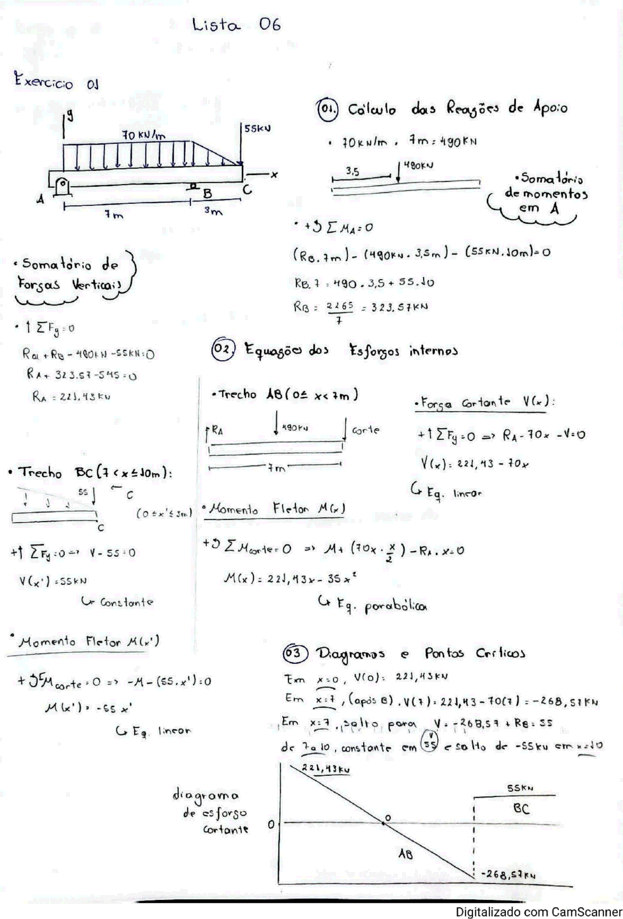 Lista 06
Exercício 01
y
70 KN/m
55KN
x
A
B
C
7m
3m
01. Cálculo das Reações de Apoio
• 70KN/m . 7m = 490KN
3,5
490KN
• Somatório
de momentos
em A
• +↺ Σ MA = 0
(RB. 7m) - (490KN . 3,5m) - (55KN.10m)=0
RB. 7 = 490 . 3,5 + 55.10
RB = 2265/7 = 323,57KN
• Somatório de
Forças Verticais
• ↑ ΣFy = 0
RA + RB - 490KN - 55KN = 0
RA + 323.57 - 545 = 0
RA = 221,43KN
02. Equações dos Esforços internos
• Trecho AB (0 ≤ x < 7m)
RA
490KN
corte
7m
• Momento Fletor M(x)
+↺ Σ Mcorte = 0 => M + (70x . x/2) - RA . x = 0
M(x) = 221,43x - 35x²
↳ Eq. parabólica
• Força Cortante V(x):
+↑ ΣFy = 0 => RA - 70x - V = 0
V(x) = 221,43 - 70x
↳ Eq. linear
• Trecho BC (7 < x ≤ 10m):
55
C
C
(0 ≤ x' ≤ 3m)
+↑ ΣFy = 0 => V - 55 = 0
V(x') = 55KN
↳ Constante
• Momento Fletor M(x')
+↺ΣMcorte = 0 => -M - (55.x') = 0
M(x') = -55 x'
↳ Eq. linear
03 Diagramas e Pontos Críticos
Em x=0, V(0) = 221,43KN
Em x=7, (após B). V(7) = 221,43 - 70(7) = -268,57KN
Em x=7, salto para V = -268,57 + RB = 55
V
de 7 a 10, constante em 55 e salto de -55KN em x=10
diagrama
de esforço
cortante
221,43KN
0
0
AB
55KN
BC
-268,57KN
Digitalizado com CamScanner